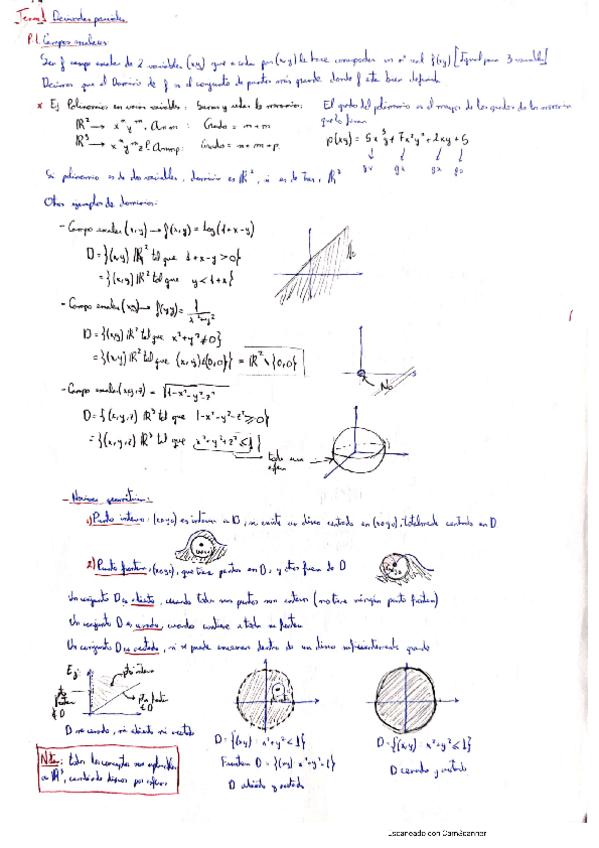 Tema 1 Derivadas parciales
P.1. Campos escalares:
Sea f campo escalar de 2 variables (x,y) que a cada par (x,y) le hace corresponder un nº real f(x,y) [Igual para 3 variables]
Decimos que el Dominio de f es el conjunto de puntos más grande donde f está bien definida
* Ej Polinomios en varias variables: Suman y restan los monomios:
ℝ² → xⁿyᵐ, Grado = n+m
ℝ³ → xⁿyᵐzᵖ Grado = n+m+p.
El grado del polinomio es el mayor de los grados de los monomios
que lo forman
Si polinomio es de dos variables, dominio es ℝ², si es de tres, ℝ³
Otros ejemplos de dominios:
- Campo escalar (x,y) → f(x,y) = log(1+x-y)
D = {(x,y) ℝ² tal que 1+x-y>0}
= {(x,y) ℝ² tal que y<1+x}
No
- Campo escalar (x,y) → f(x,y) = 1/(x²+y²)
D = {(x,y) ℝ² tal que x²+y²≠0}
= {(x,y) ℝ² tal que (x,y)≠(0,0)} = ℝ² \ {0,0}
No
- Campo escalar (x,y,z) = √(1-x²-y²-z²)
D = {(x,y,z) ℝ³ tal que 1-x²-y²-z²≥0}
= {(x,y,z) ℝ³ tal que x²+y²+z²≤1}
toda una
esfera
- Nociones geométricas:
1) Punto interior: (x0,y0) es interior a D, si existe un disco centrado en (x0,y0), totalmente contenido en D
2) Punto frontera, (x0,y0), que tiene puntos en D, y otros fuera de D
Un conjunto D es abierto, cuando todos sus puntos son interiores (no tiene ningún punto frontera)
Un conjunto D es cerrado, cuando contiene a toda su frontera
Un conjunto D es acotado, si se puede encerrar dentro de un disco suficientemente grande
Ej:
pto interior
pto frontera
∈ D
D no cerrado, ni abierto ni acotado
D = {(x,y) : x²+y²<1}
Frontera D = {(x,y) : x²+y²=1}
D abierto y acotado
D = {(x,y) : x²+y²≤1}
D cerrado y acotado
Nota: todos los conceptos son aplicables
a ℝ³, cambiando discos por esferas
Escaneado con CamScanner